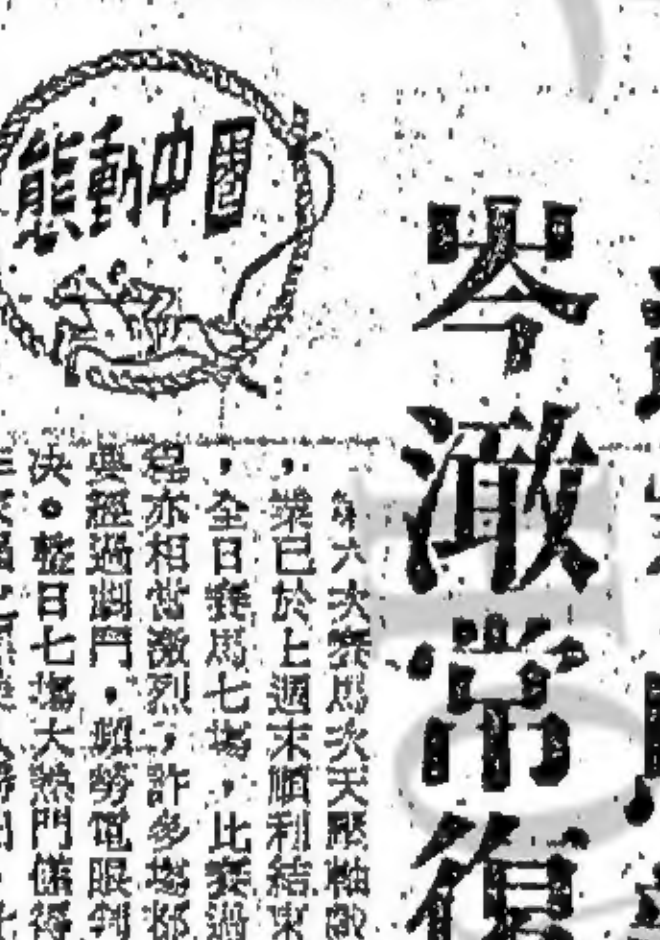 岑澉常復
圈中動態
第六次賽馬次天壓軸戲
，業已於上週末順利結束
，全日賽馬七場，比賽過
程亦相當激烈，許多場都
經過劇鬥，煩勞電眼判
決。整日七場大熱門僅得